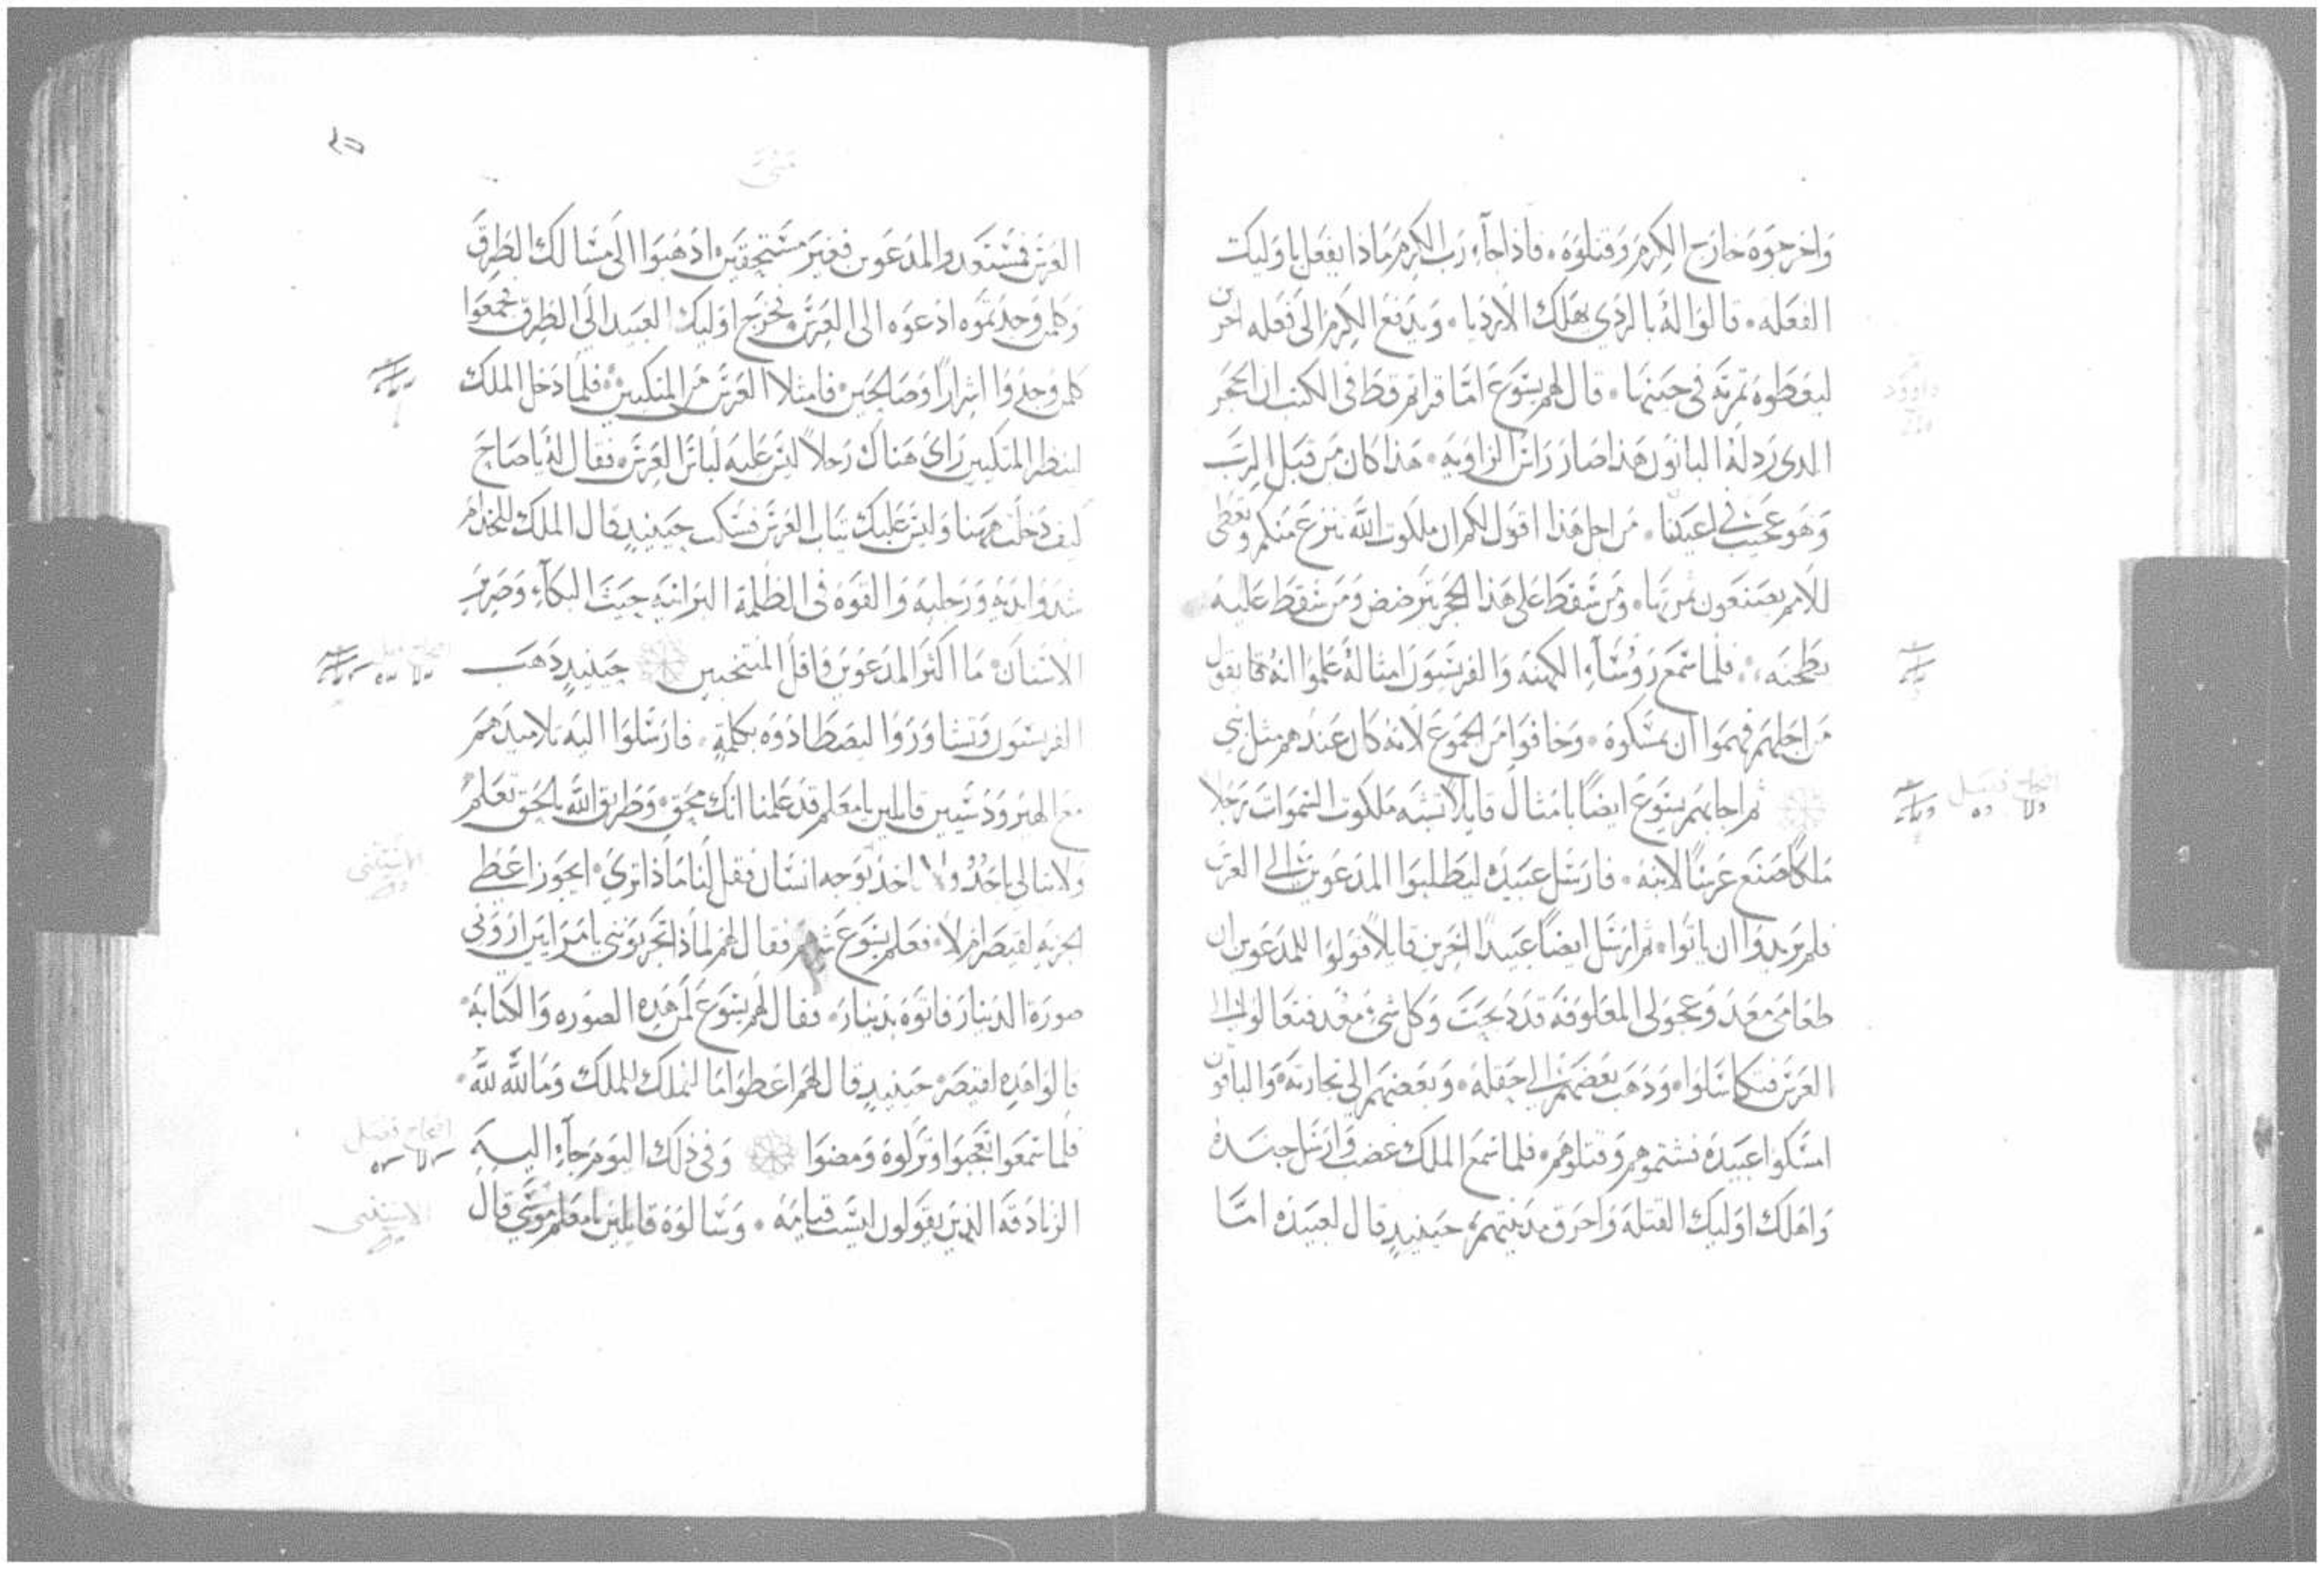 واخرجوه خارج الكرم وقتلوه. فاذا جاء رب الكرم ماذا يفعل باوليك
الفعله. قالوا له بالردي يهلك الارديا. ويدفع الكرم الى فعله اخرين
ليعطوه ثمرته في حينها. قال لهم يسوع اما قراتم قط في الكتب ان الحجر
الدى رذله البانون هذا صار راس الزاويه. هذا كان من قبل الرب
وهو عجيب في اعيننا. من اجل هذا اقول لكم ان ملكوت الله تنزع منكم وتعطى
للامم يصنعون ثمرتها. ومن سقط على هذا الحجر يترضض ومن سقط عليه
يطحنه. فلما سمع روساء الكهنه والفريسيون امثاله علموا انه انما يقول
من اجلهم فهموا ان يمسكوه. وخافوا من الجموع لانه كان عندهم مثل نبي
ثم اجابهم يسوع ايضا بامثال قايلا تشبه ملكوت السموات رجلا
ملكا صنع عرسا لابنه. فارسل عبيده ليطلبوا المدعوين الى العرس
فلم يريدوا ان ياتوا. ثم ارسل ايضا عبيدا اخرين قايلا قولوا للمدعوين ان
طعامى معد وعجولى المعلوفه قد دبحت وكل شي معد فتعالوا الى
العرس فتكاسلوا. ودهب بعضهم الى حقله. وبعضهم الى تجارته والباقون
امسكوا عبيده فشتموهم وقتلوهم. فلما سمع الملك غضب وارسل جنده
واهلك اوليك القتله واحرق مدينتهم. حينيد قال لعبيده اما
داوود
اصحاح فصل
متى
٣٥
العرس فمستعد والمدعوين فغير مستحقين. ادهبوا الى مسالك الطرق
وكل من وجدتموه ادعوه الى العرس. فخرج اوليك العبيد الى الطرق فجمعوا
كل من وجدوا اشرارا وصالحين. فامتلا العرس من المتكيين. فلما دخل الملك
لينظر المتكيين راى هناك رجلا ليس عليه لباس العرس. فقال له يا صاح
كيف دخلت ههنا وليس عليك تياب العرس فسكت حينيد قال الملك للخدام
شدوا يديه ورجليه والقوه فى الظلمة البرانيه حيث البكاء وصرير
الاسنان. ما اكثر المدعوين واقل المنتخبين حينيد دهب
الفريسيون وتشاوروا ليصطادوه بكلمة. فارسلوا اليه تلاميدهم
مع الهيرودسيين قايلين يا معلم قد علمنا انك محق. وطريق الله بالحق تعلم
ولا تبالى باحد ولا تاخد بوجه انسان فقل لنا ماذا ترى. ايجوز اعطى
الجزيه لقيصر ام لا. فعلم يسوع شرهم فقال لهم لماذا تجربوننى يا مرايين اروني
صورة الدينار فاتوه بدينار. فقال لهم يسوع لمن هده الصوره والكتابه.
قالوا هده لقيصر. حينيد قال لهم اعطوا ما للملك للملك وما لله لله.
فلما سمعوا تعجبوا وتركوه ومضوا وفى ذلك اليوم جاء اليه
الزنادقه الذين يقولون ليست قيامه. وسالوه قايلين يا معلم موسي قال
اصحاح فصل
الاستثنى
اصحاح فصل
الاستثنى